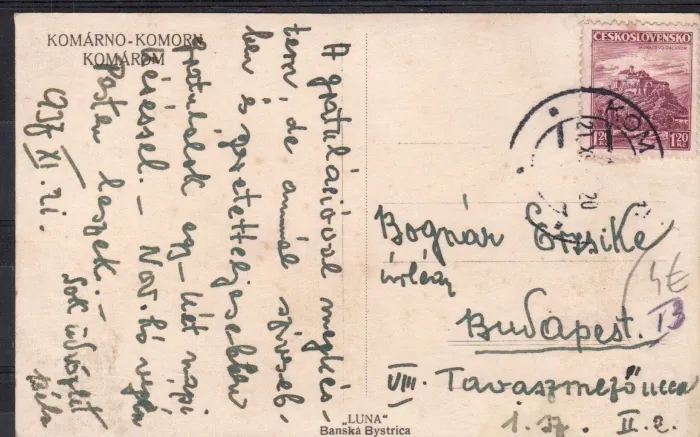 KOMÁRNO-KOMORN
KOMÁROM
A gratulációval megkés-
tem, de annál szíveseb-
ben és szeretetteljesebben
gratulálok egy-két napi
késéssel. - Nov. hó végén
Pesten leszek. -
Sok üdvözlet
Béla
937 XI. 21.
ČESKOSLOVENSKO
1.20 1.20
KOM
21.XI
20
Bognár Erzsike
úrleány
Budapest.
VIII. Tavaszmező ucca
1. sz. II. e.
4€
13
„LUNA"
Banská Bystrica